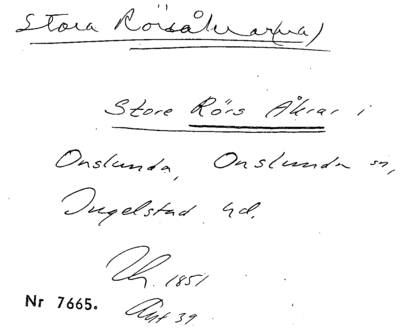 Stora Rörsåkrar(na)
Store Rörs Åkrar i
Onslunda, Onslunda sn,
Ingelstad hd.
Uh. 1851
Nr 7665. Akt 39